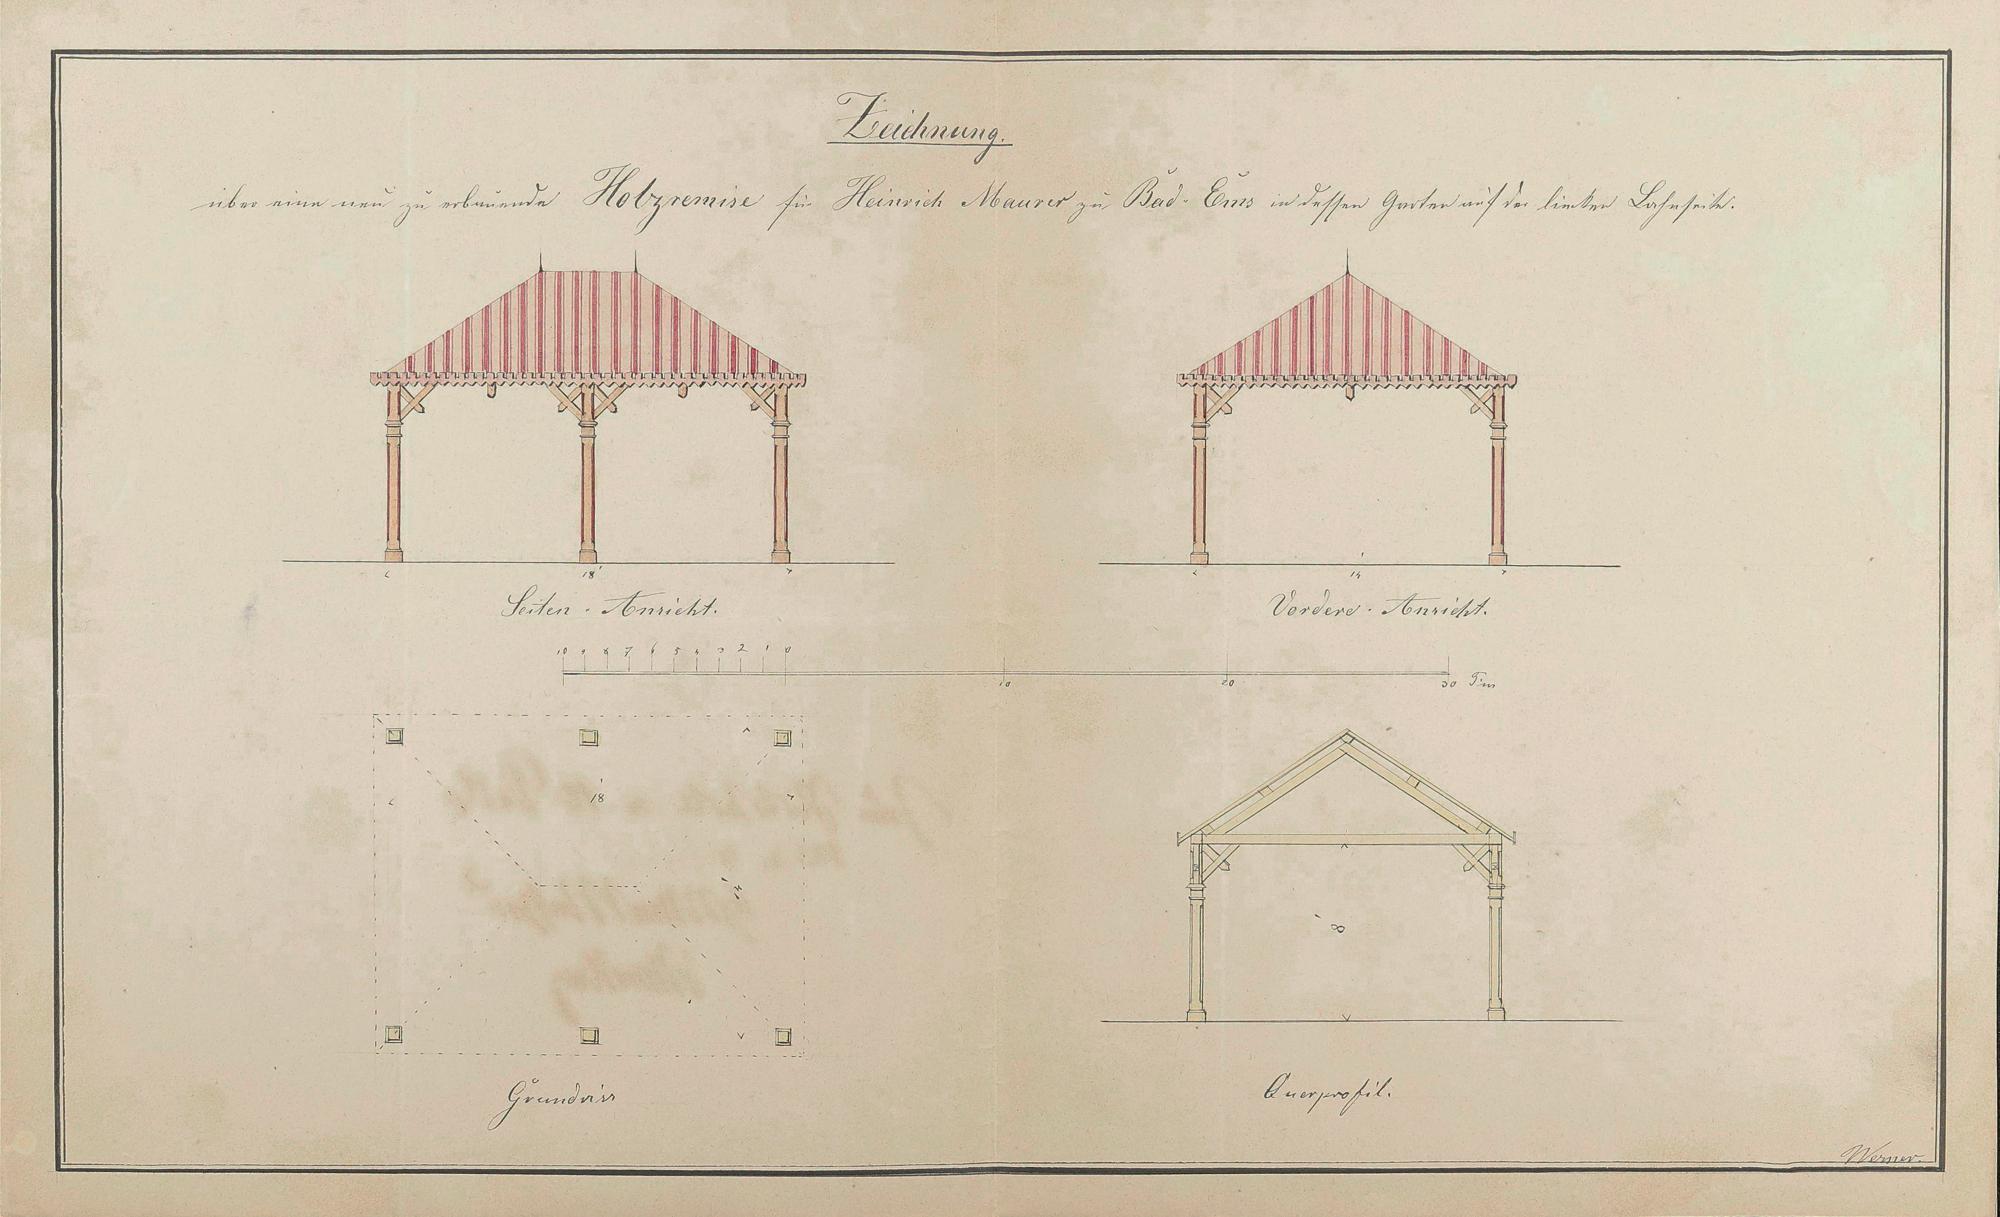 Zeichnung.
über eine neu zu erbauende Holzremise für Heinrich Maurer zu Bad-Ems in dessen Garten auf der linken Lahnseite.
18'
14'
Seiten-Ansicht.
Vordere-Ansicht.
10 9 8 7 6 5 4 3 2 1 0
10 20 30
18'
14'
8'
Grundriss
Querprofil.
Werner.